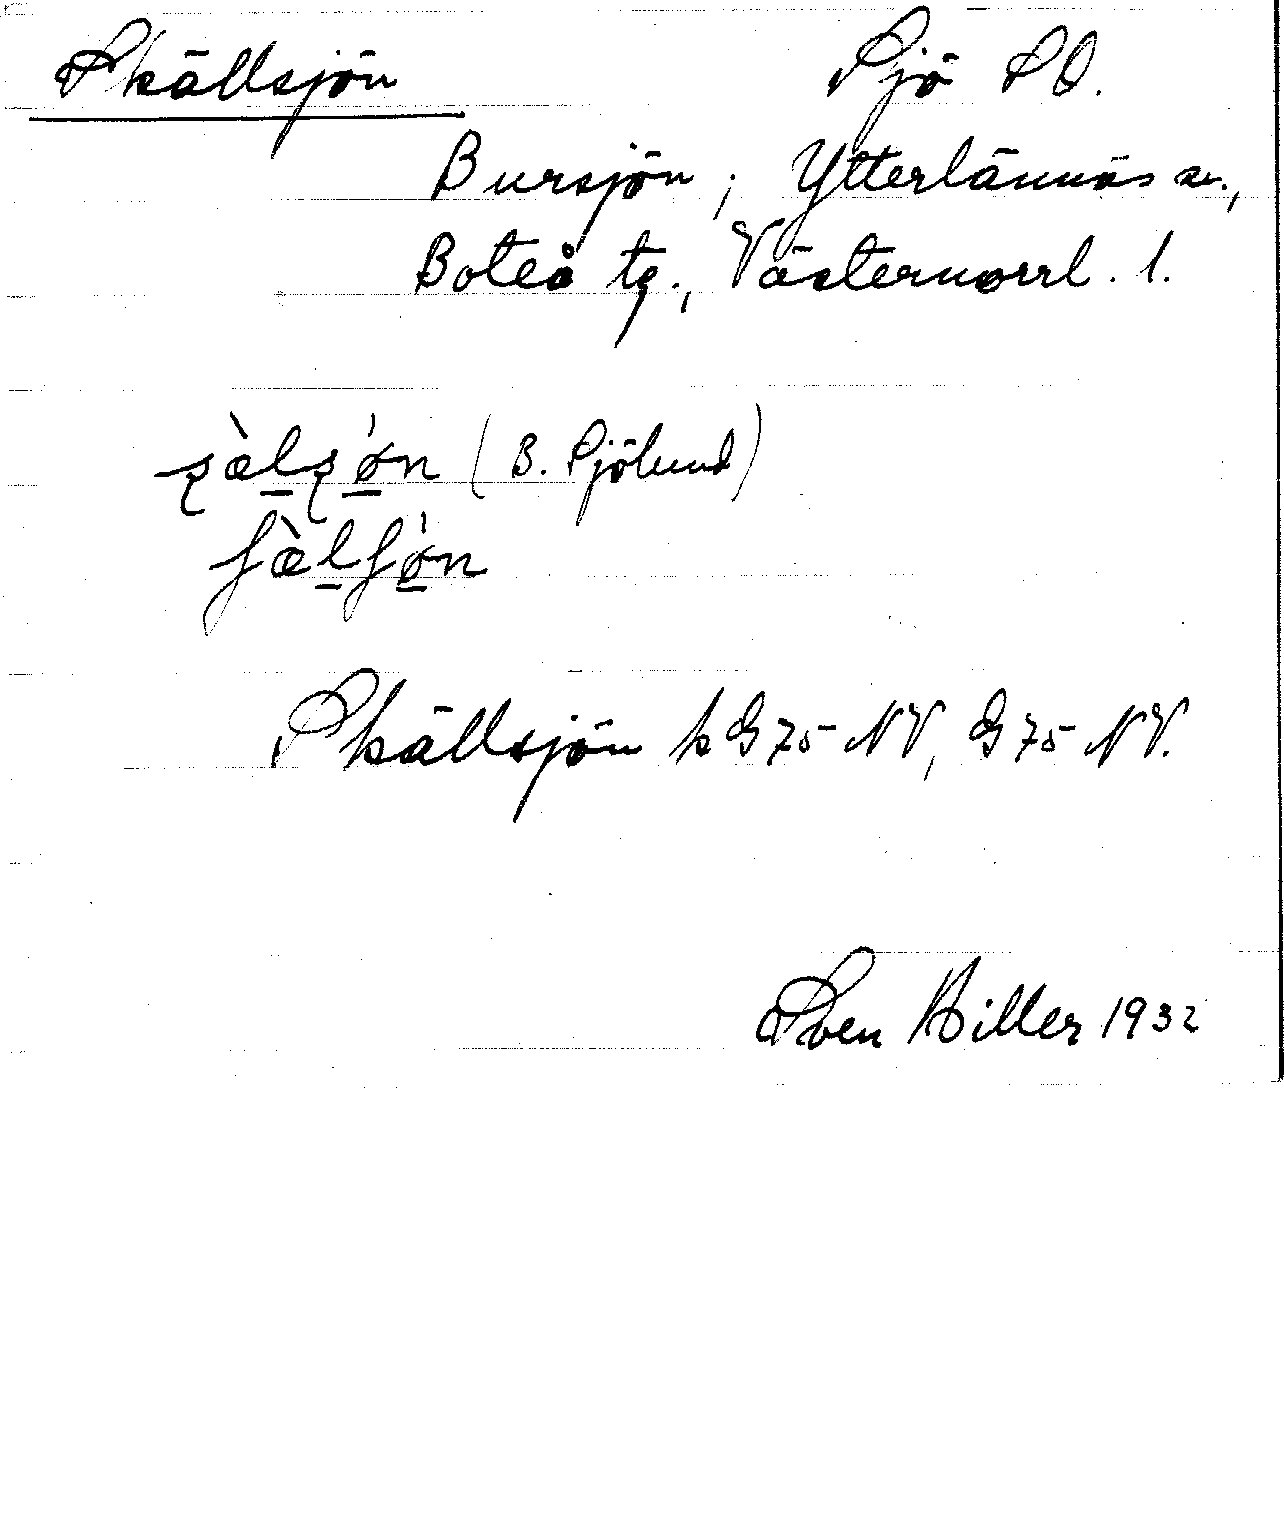 Skällsjön Sjö SO.
Bursjön; Ytterlännäs sn.,
Boteå tg., Västernorrl. l.
(B. Sjölund)
Skällsjön k G 75 NV, G 75 NV.
Sven Hiller 1932